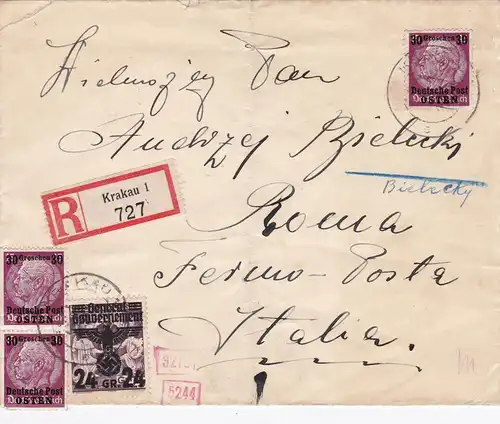 30 Groschen 30
Deutsche Post
OSTEN
Wielmożny Pan
Andrzej Bielecki
Bielecky
R
Krakau 1
727
Roma
Fermo-Posta
Italia.
30 Groschen 30
Deutsche Post
OSTEN
30 Groschen 30
Deutsche Post
OSTEN
General
Gouvernement
24 GR 24
5244